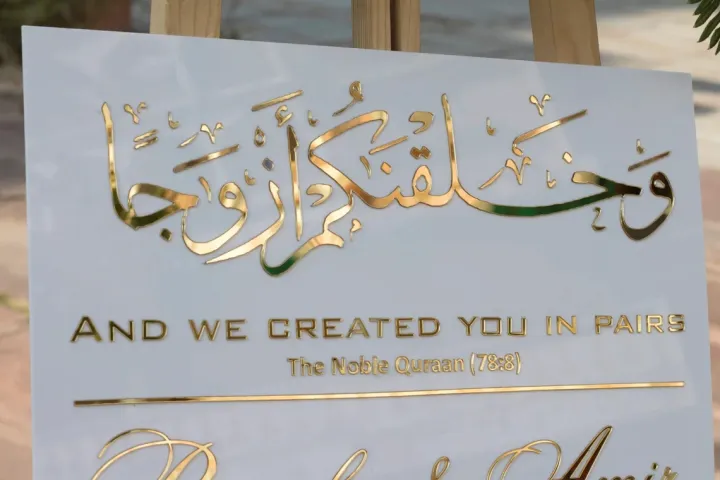 وَخَلَقْنَكُمْ أَزْوَجًا
AND WE CREATED YOU IN PAIRS
The Noble Quraan (78:8)
& Amir